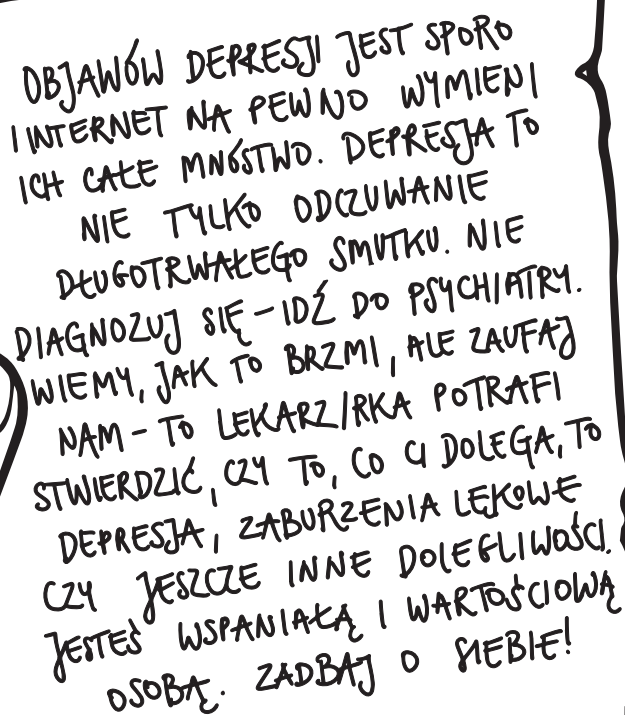 OBJAWÓW DEPRESJI JEST SPORO
I INTERNET NA PEWNO WYMIENI
ICH CAŁE MNÓSTWO. DEPRESJA TO
NIE TYLKO ODCZUWANIE
DŁUGOTRWAŁEGO SMUTKU. NIE
DIAGNOZUJ SIĘ – IDŹ DO PSYCHIATRY.
WIEMY, JAK TO BRZMI, ALE ZAUFAJ
NAM – TO LEKARZ/RKA POTRAFI
STWIERDZIĆ, CZY TO, CO CI DOLEGA, TO
DEPRESJA, ZABURZENIA LĘKOWE
CZY JESZCZE INNE DOLEGLIWOŚCI.
JESTEŚ WSPANIAŁĄ I WARTOŚCIOWĄ
OSOBĄ. ZADBAJ O SIEBIE!